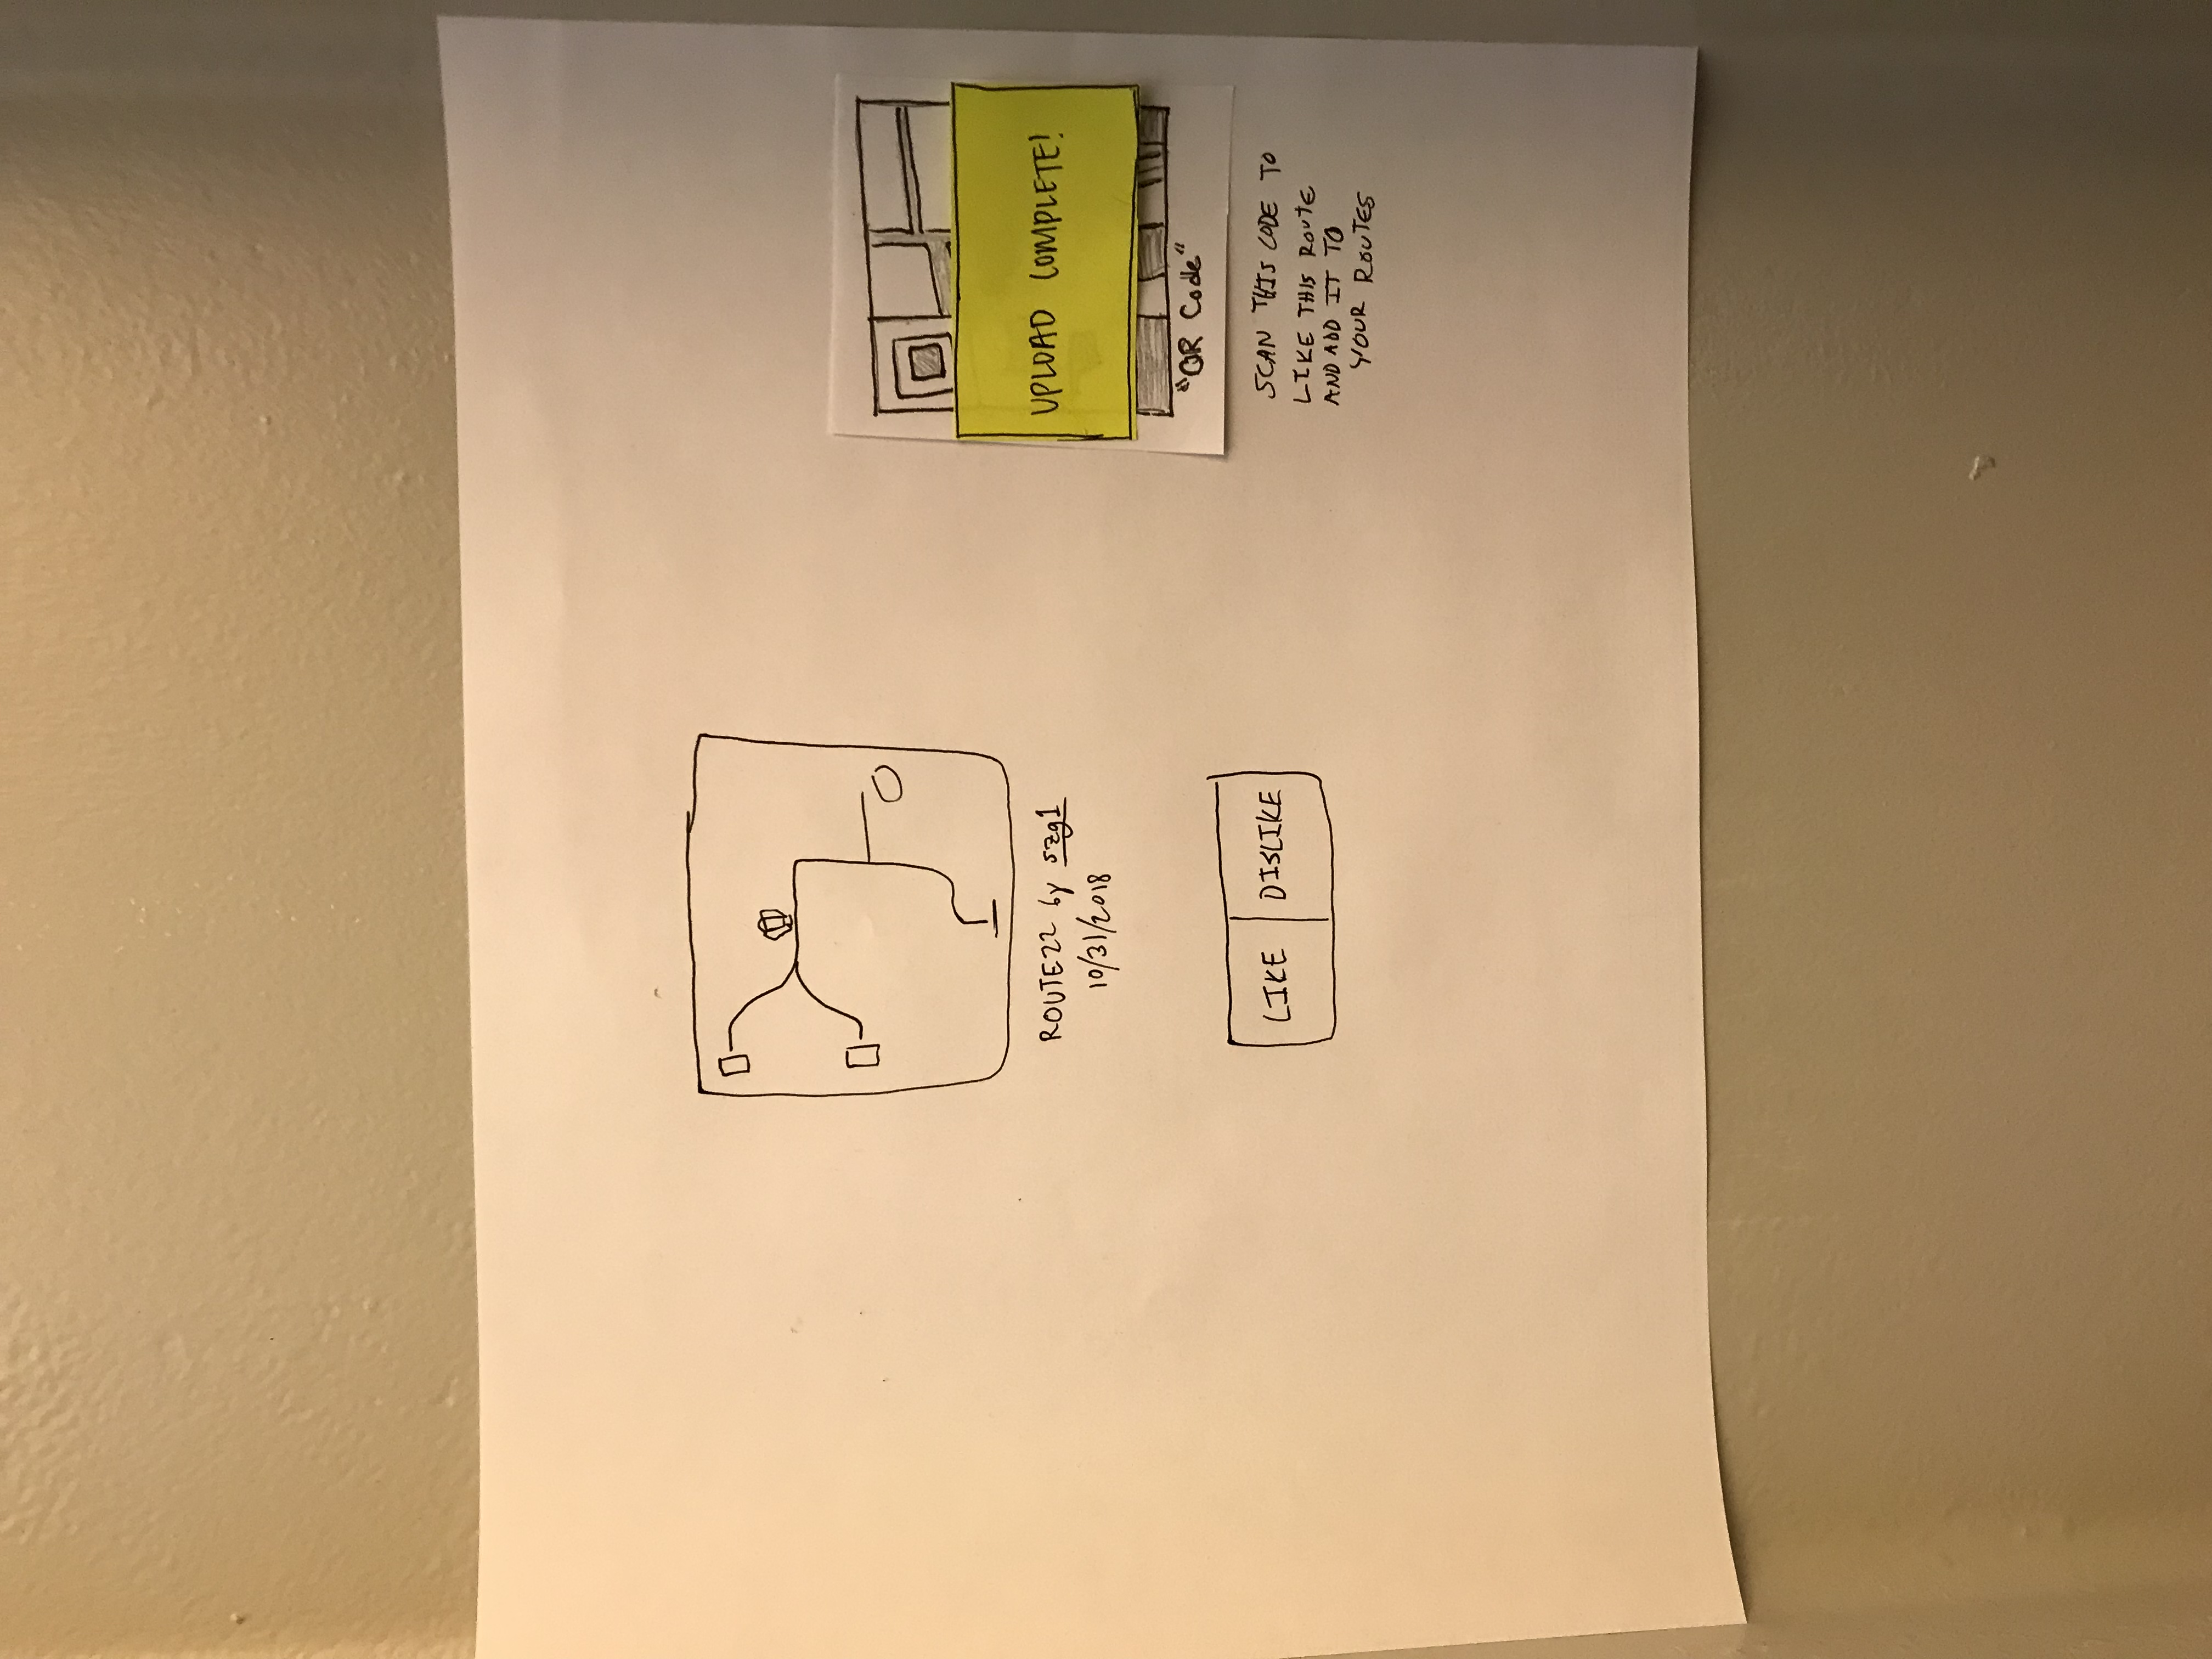 ROUTE22 by szg1
10/31/2018
LIKE DISLIKE
UPLOAD COMPLETE!
"QR Code"
SCAN THIS CODE TO
LIKE THIS ROUTE
AND ADD IT TO
YOUR ROUTES